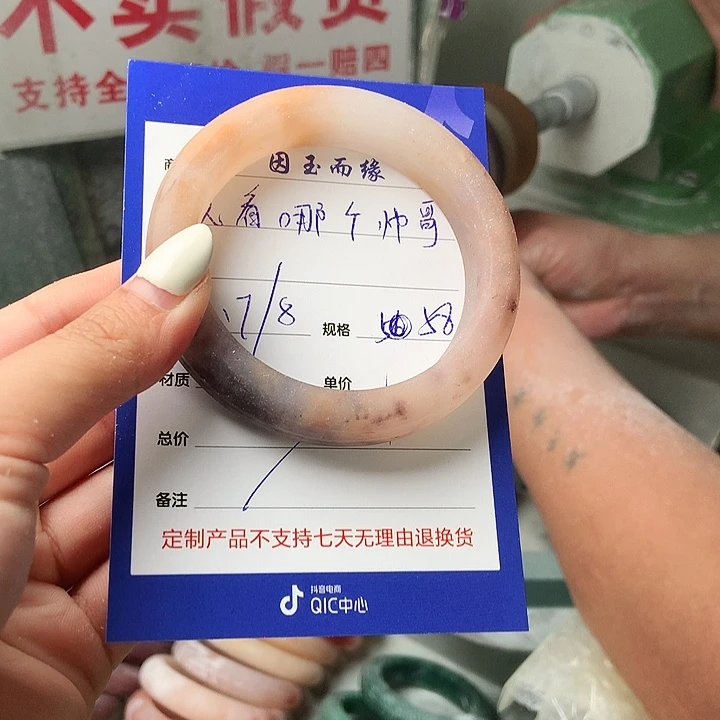 不卖假货
支持全 假一赔四
商
因玉而缘
看哪个帅哥
.7/8 规格 58
材质 单价
总价
备注
定制产品不支持七天无理由退换货
抖音电商
QIC中心